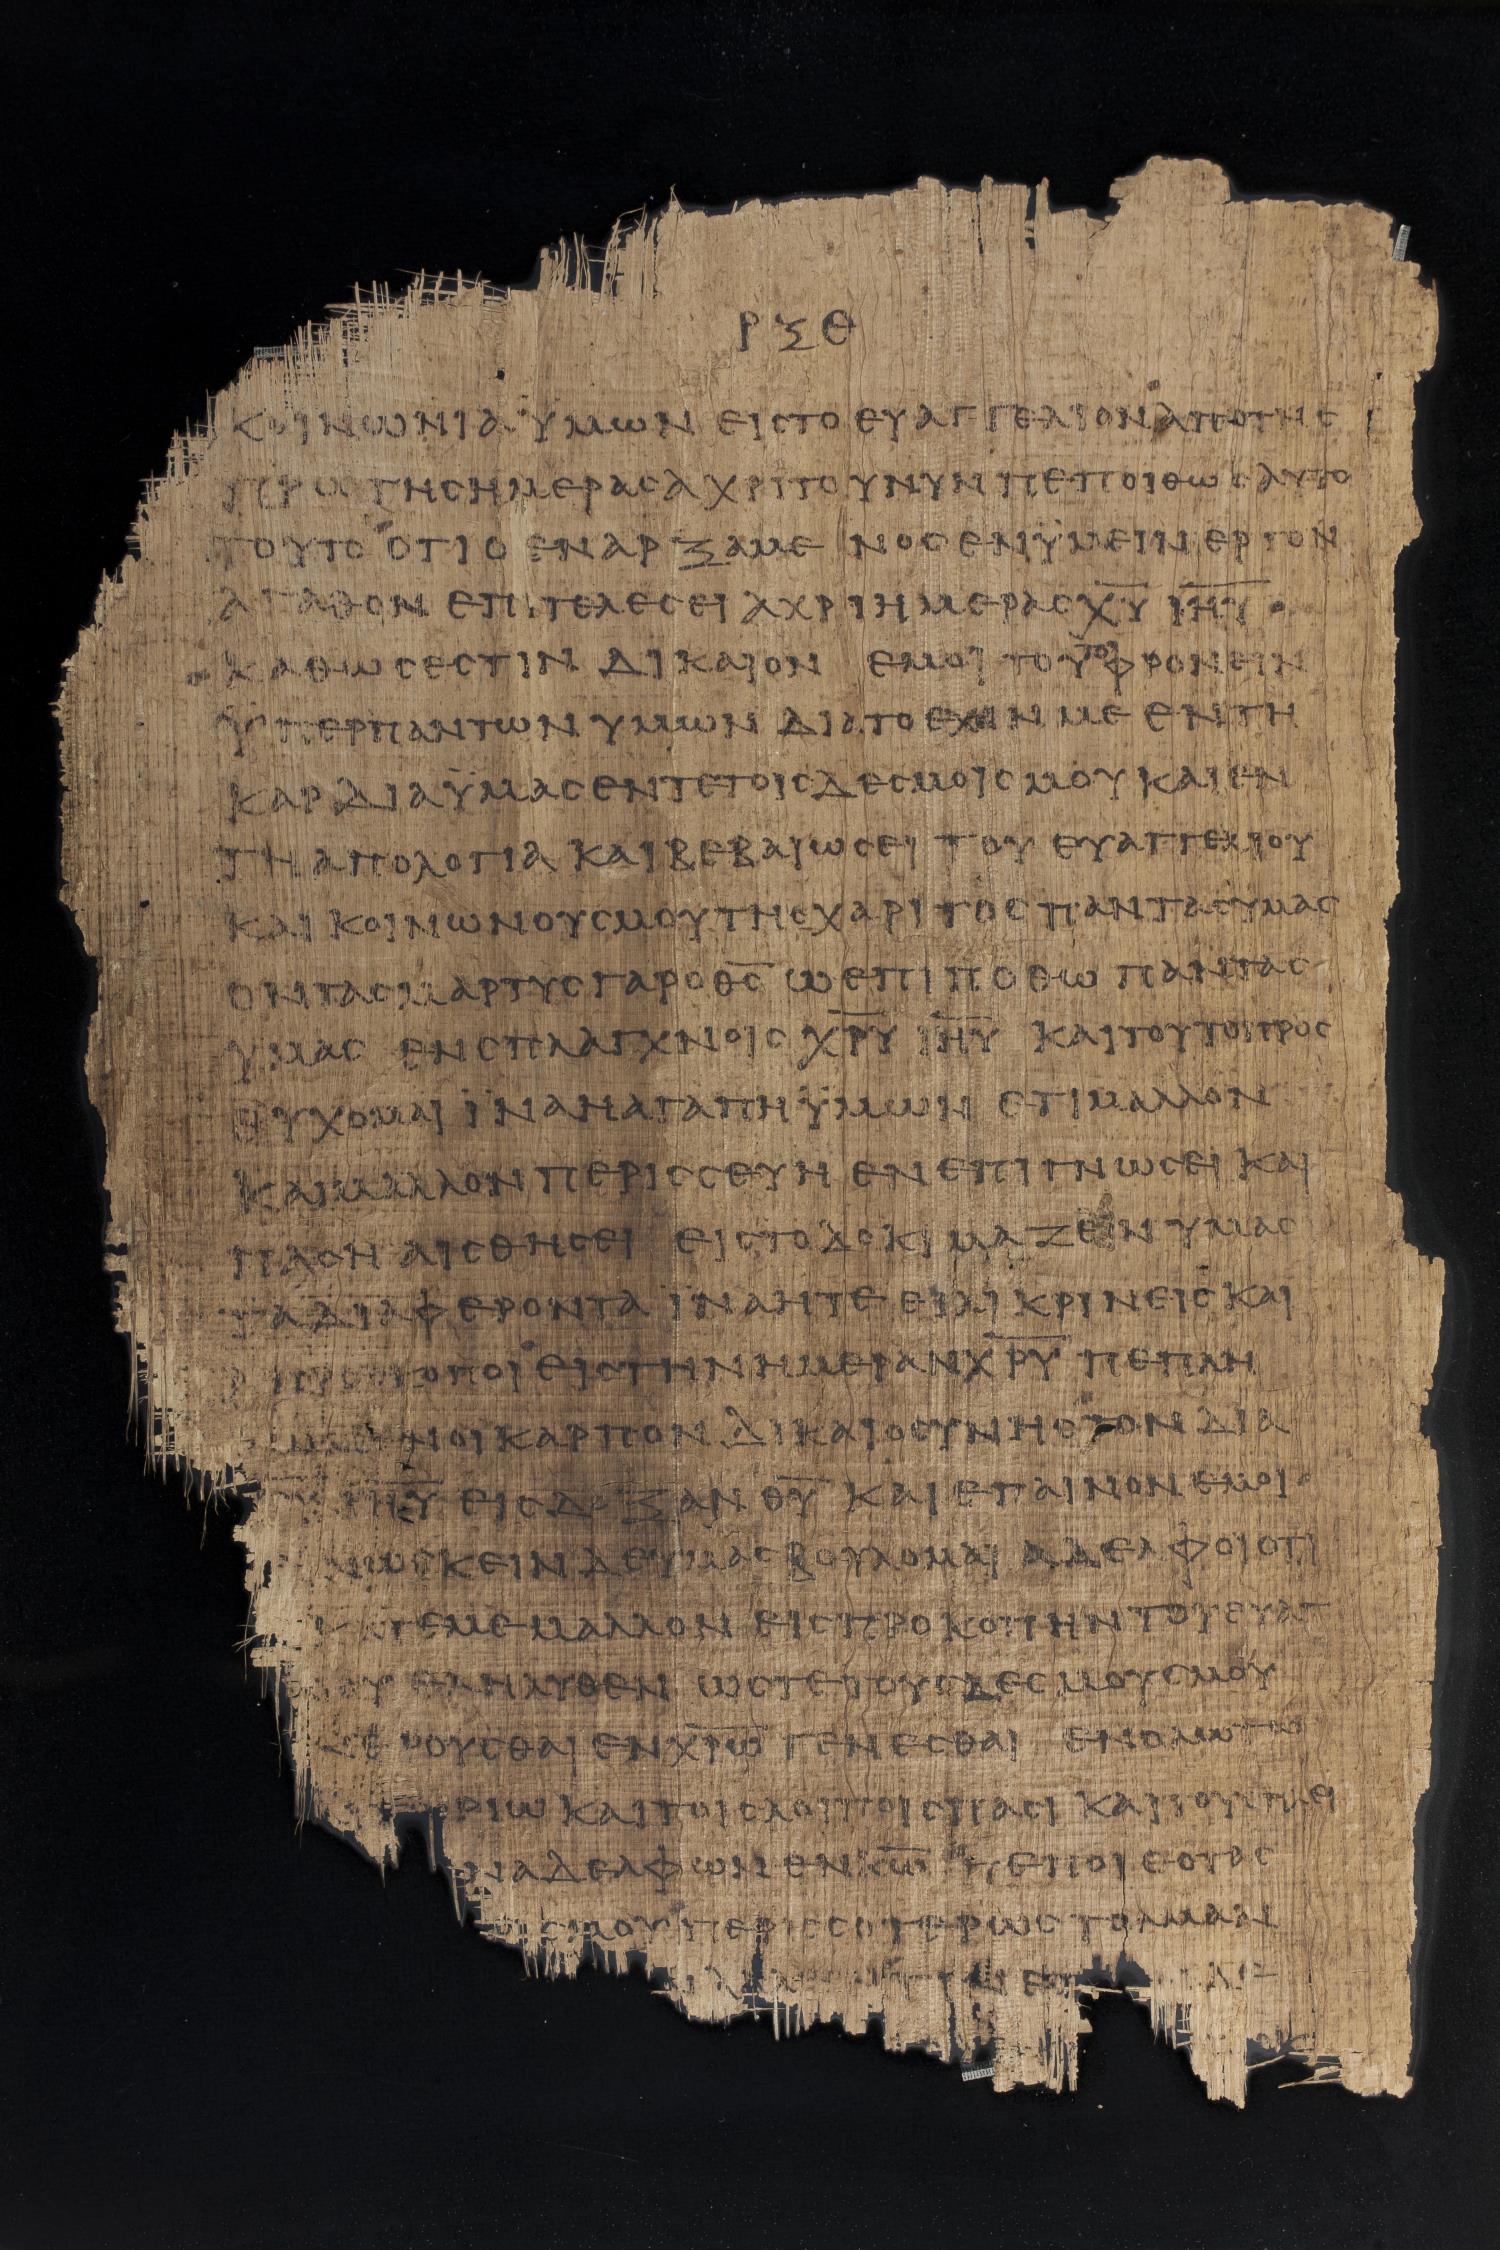 ΡΞΘ
ΚΟΙΝΩΝΙΑ ΫΜΩΝ ΕΙϹΤΟ ΕΥΑΓΓΕΛΙΟΝ ΑΠΟΤΗϹ
ΠΡΩΤΗϹΗΜΕΡΑϹΑΧΡΙΤΟΥΝΥΝ ΠΕΠΟΙΘΩϹ ΑΥΤΟ
ΤΟΥΤΟ ΟΤΙ Ο ΕΝΑΡΞΑΜΕΝΟϹ ΕΝ ΫΜΕΙΝ ΕΡΓΟΝ
ΑΓΑΘΟΝ ΕΠΙΤΕΛΕϹΕΙ ΑΧΡΙ ΗΜΕΡΑϹ Χ̅Υ̅ Ι̅Η̅Υ̅ ·
ΚΑΘΩϹ ΕϹΤΙΝ ΔΙΚΑΙΟΝ ΕΜΟΙ ΤΟΥΤΟ ΦΡΟΝΕΙΝ
ΫΠΕΡ ΠΑΝΤΩΝ ΥΜΩΝ ΔΙΑ ΤΟ ΕΧΙΝ ΜΕ ΕΝ ΤΗ
ΚΑΡΔΙΑ ΫΜΑϹ ΕΝ ΤΕ ΤΟΙϹ ΔΕϹΜΟΙϹ ΜΟΥ ΚΑΙ ΕΝ
ΤΗ ΑΠΟΛΟΓΙΑ ΚΑΙ ΒΕΒΑΙΩϹΕΙ ΤΟΥ ΕΥΑΓΓΕΛΙΟΥ
ΚΑΙ ΚΟΙΝΩΝΟΥϹ ΜΟΥ ΤΗϹ ΧΑΡΙΤΟϹ ΠΑΝΤΑϹ ΥΜΑϹ
ΟΝΤΑϹ ΜΑΡΤΥϹ ΓΑΡ Ο Θ̅Ϲ̅ ΩϹ ΕΠΙΠΟΘΩ ΠΑΝΤΑϹ
ΥΜΑϹ ΕΝ ϹΠΛΑΓΧΝΟΙϹ Χ̅Ρ̅Υ̅ Ι̅Η̅Υ̅ ΚΑΙ ΤΟΥΤΟ ΠΡΟϹ
ΕΥΧΟΜΑΙ ΪΝΑ Η ΑΓΑΠΗ ΫΜΩΝ ΕΤΙ ΜΑΛΛΟΝ
ΚΑΙ ΜΑΛΛΟΝ ΠΕΡΙϹϹΕΥΗ ΕΝ ΕΠΙΓΝΩϹΕΙ ΚΑΙ
ΠΑϹΗ ΑΙϹΘΗϹΕΙ ΕΙϹ ΤΟ ΔΟΚΙΜΑΖΕΙΝ ΥΜΑϹ
ΤΑ ΔΙΑΦΕΡΟΝΤΑ ΪΝΑ ΗΤΕ ΕΙΛΙΚΡΙΝΕΙϹ ΚΑΙ
ΑΠΡΟϹΚΟΠΟΙ ΕΙϹ ΤΗΝ ΗΜΕΡΑΝ Χ̅Ρ̅Υ̅ ΠΕΠΛΗ
ΡΩΜΕΝΟΙ ΚΑΡΠΟΝ ΔΙΚΑΙΟϹΥΝΗϹ ΤΟΝ ΔΙΑ
Ι̅Η̅Υ̅ ΕΙϹ ΔΟΞΑΝ Θ̅Υ̅ ΚΑΙ ΕΠΑΙΝΟΝ ΕΜΟΙ·
ΝΩϹΚΕΙΝ ΔΕ ΥΜΑϹ ΒΟΥΛΟΜΑΙ ΑΔΕΛΦΟΙ ΟΤΙ
ΚΑΤ ΕΜΕ ΜΑΛΛΟΝ ΕΙϹ ΠΡΟΚΟΠΗΝ ΤΟΥ ΕΥΑΓ
ΟΥ ΕΛΗΛΥΘΕΝ ΩϹΤΕ ΤΟΥϹ ΔΕϹΜΟΥϹ ΜΟΥ
ΝΕΡΟΥϹ ΘΑΙ ΕΝ Χ̅Ρ̅Ω̅ ΓΕΝΕϹΘΑΙ ΕΝ ΟΛΩ ΤΩ
ΡΙΩ ΚΑΙ ΤΟΙϹ ΛΟΙΠΟΙϹ ΠΑϹΙ ΚΑΙ ΤΟΥϹ ΠΛΕΙ
ΟΝΑϹ ΑΔΕΛΦΩΝ ΕΝ Κ̅Ω̅ ΠΕΠΟΙΘΟΤΑϹ
ΟΙϹ ΜΟΥ ΠΕΡΙϹϹΟΤΕΡΩϹ ΤΟΛΜΑΝ